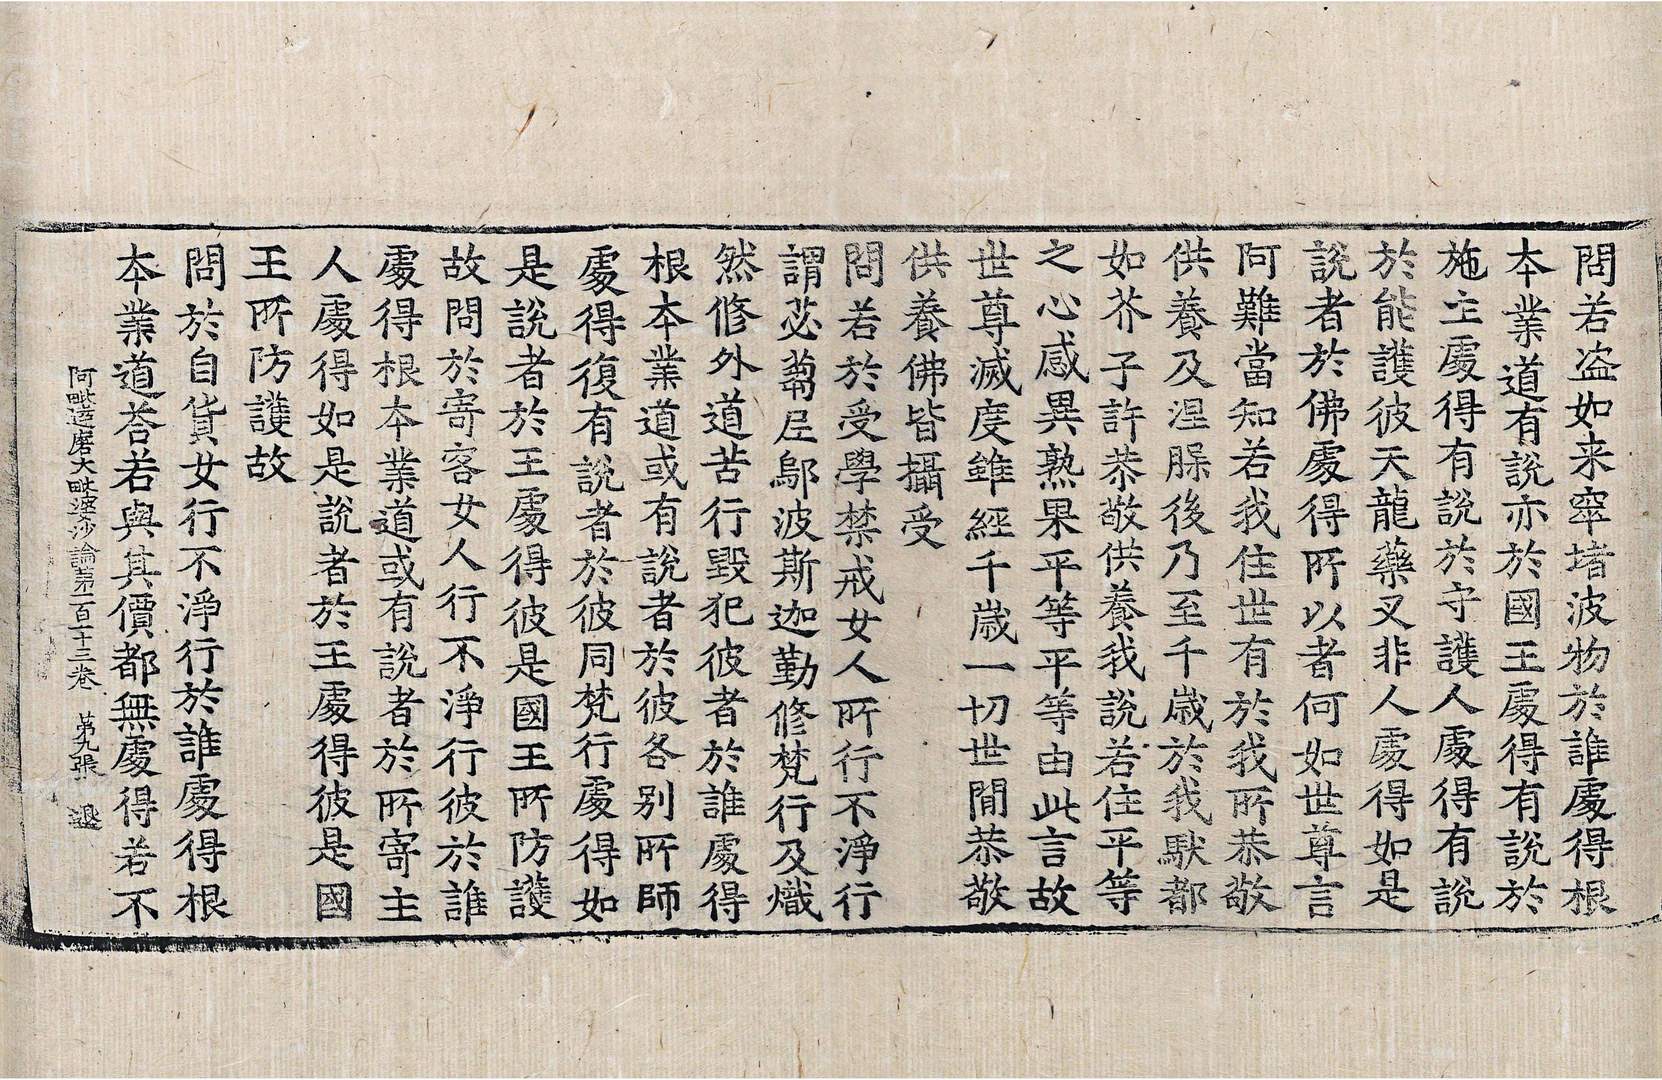 問若盗如来窣堵波物於誰處得根
本業道有說亦於國王處得有說於
施主處得有說於守護人處得有說
於能護彼天龍藥叉非人處得如是
說者於佛處得所以者何如世尊言
阿難當知若我住世有於我所恭敬
供養及涅脲後乃至千歲於我馱都
如芥子許恭敬供養我說若住平等
之心感異熟果平等平等由此言故
世尊滅度雖經千歲一切世間恭敬
供養佛皆攝受
問若於受學禁戒女人所行不淨行
謂苾蒭尼鄔波斯迦勤修梵行及熾
然修外道苦行毀犯彼者於誰處得
根本業道或有說者於彼各別所師
處得復有說者於彼同梵行處得如
是說者於王處得彼是國王所防護
故問於寄客女人行不淨行彼於誰
處得根本業道或有說者於所寄主
人處得如是說者於王處得彼是國
王所防護故
問於自貨女行不淨行於誰處得根
本業道荅若與其價都無處得若不
阿毗達磨大毗婆沙論第一百一十三卷 第九張 逊